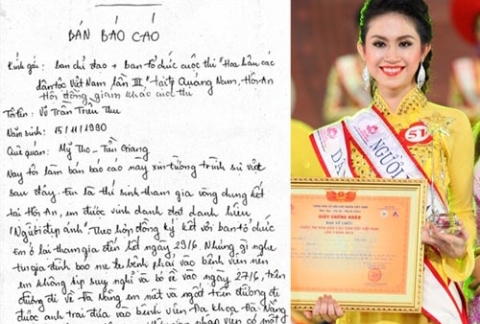 BẢN BÁO CÁO
Kính gửi: Ban chỉ đạo + ban tổ chức cuộc thi "Hoa hậu các
dân tộc Việt Nam lần III," tại Quảng Nam, Hội An
Hội đồng giám khảo cuộc thi
Tôi tên: Võ Trần Triều Thu
Năm sinh: 15/11/1990
Quê quán: Mỹ Tho - Tiền Giang
Nay tôi làm bản báo cáo này xin tường trình sự việt
sau đây: tôi là thí sinh tham gia vòng chung kết
tại Hội An, em được vinh danh đạt danh hiệu
"Người đẹp ảnh". Theo hợp đồng ký kết với ban tổ chức
Em ở lại tham gia đến hết ngày 29/6. Nhưng gì nghe
tin gia đình báo mẹ bệnh phải vào bệnh viện nên
em không kịp suy nghĩ và bỏ về vào ngày 27/6, trên
đường đi về Đà Nẵng em mệt và ngất trên đường đi
được anh trai đưa vào bệnh viện Đa khoa Đà Nẵng
có một
NGƯỜI
51
DÂN
GIẤY CHỨNG NHẬN